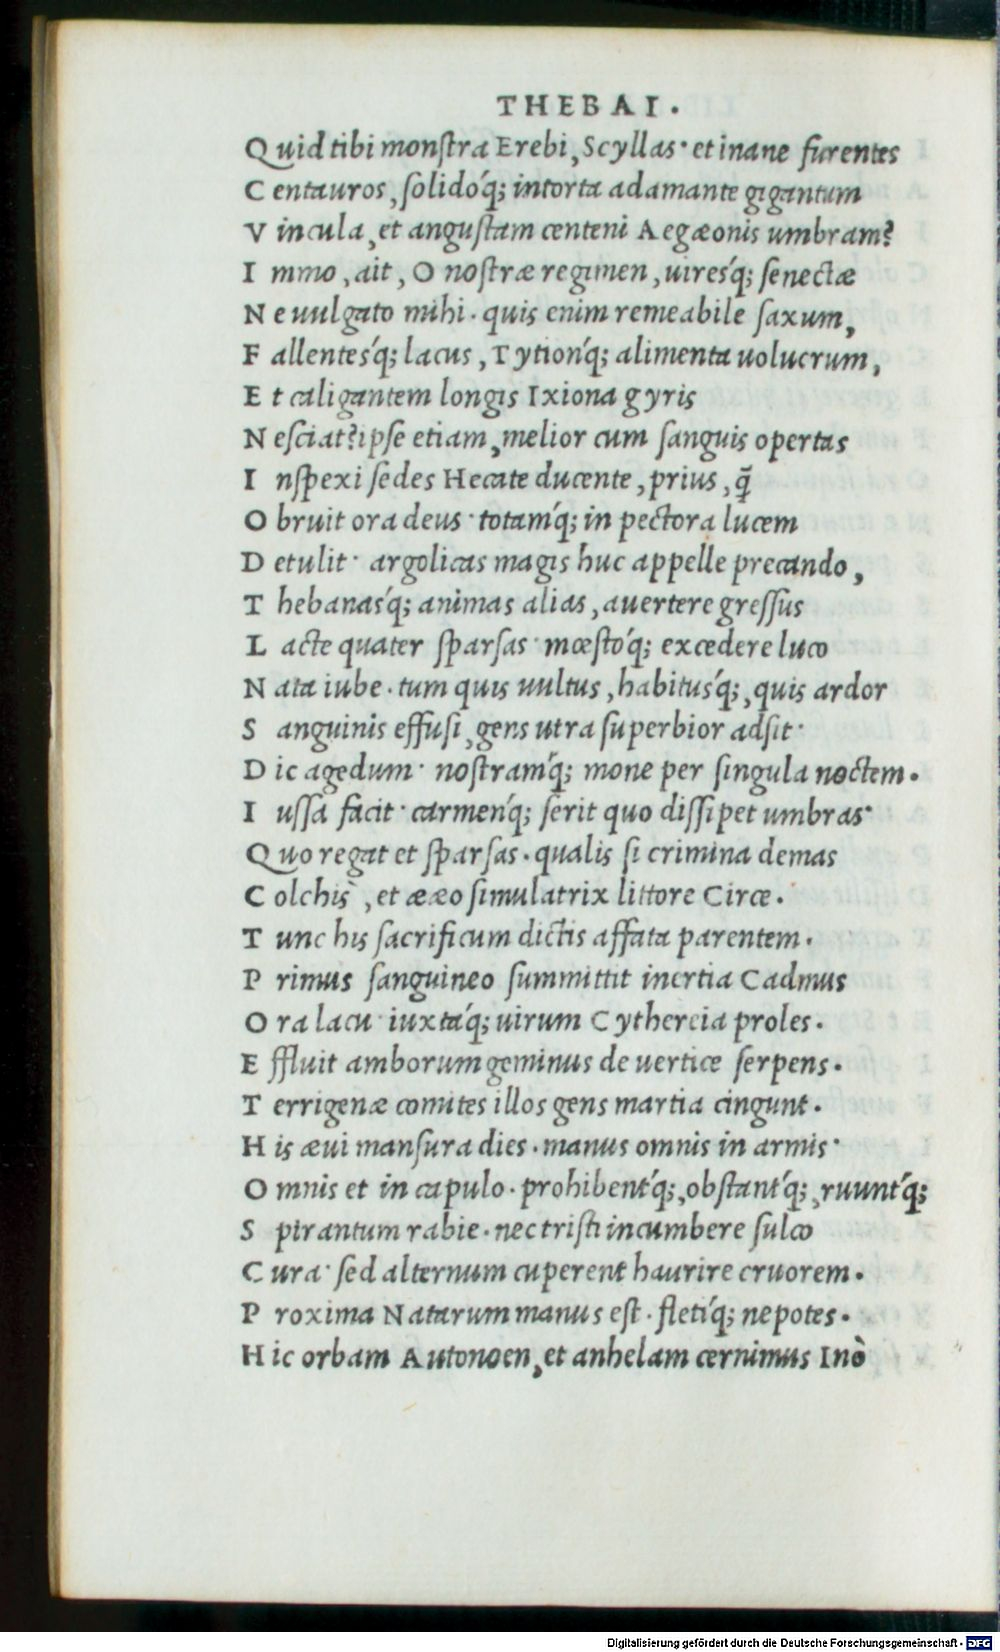 THEBAI.
Quid tibi monſtra Erebi, Scyllas· et inane furentes
Centauros, ſolidóq; intorta adamante gigantum
Vincula, et anguſtam centeni Aegæonis umbram?
Immo, ait, O noſtræ regimen, uiresq́; ſenectæ
Ne uulgato mihi. quis enim remeabile ſaxum,
Fallentesq́; lacus, Tytionq́; alimenta uolucrum,
Et caligantem longis Ixiona gyris
Neſciat? ipſe etiam, melior cum ſanguis opertas
Inſpexi ſedes Hecate ducente, prius, q̃
Obruit ora deus· totamq́; in pectora lucem
Detulit· argolicas magis huc appelle precando,
Thebanasq́; animas alias, auertere greſſus
Lacte quater ſparſas· mœſtóq; excedere luco
Nata iube. tum quis uultus, habitusq́;, quis ardor
Sanguinis effuſi, gens utra ſuperbior adſit·
Dic agedum· noſtramq́; mone per ſingula noctem.
Iuſſa facit· carmenq́; ſerit quo diſſipet umbras·
Quo regat et ſparſas. qualis ſi crimina demas
Colchis`, et ææo ſimulatrix littore Circe.
Tunc his ſacrificum dictis affata parentem.
Primus ſanguineo ſummittit inertia Cadmus
Ora lacu· iuxtáq; uirum Cythereia proles.
Effluit amborum geminus de uertice ſerpens.
Terrigenæ comites illos gens martia cingunt.
His æui manſura dies. manus omnis in armis·
Omnis et in capulo. prohibentq́;, obſtantq́;, ruuntq́;
Spirantum rabie. nec triſti incumbere ſulco
Cura· ſed alternum cuperent haurire cruorem.
Proxima Natarum manus eſt. fletiq́; nepotes.
Hic orbam Autonoen, et anhelam cernimus Inò
Digitalisierung gefördert durch die Deutsche Forschungsgemeinschaft - DFG